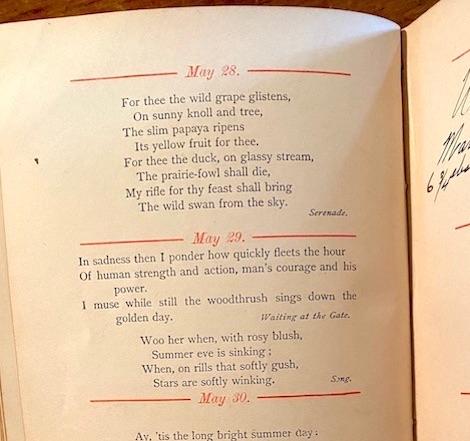 May 28.
For thee the wild grape glistens,
On sunny knoll and tree,
The slim papaya ripens
Its yellow fruit for thee.
For thee the duck, on glassy stream,
The prairie-fowl shall die,
My rifle for thy feast shall bring
The wild swan from the sky.
Serenade.
May 29.
In sadness then I ponder how quickly fleets the hour
Of human strength and action, man's courage and his
power.
I muse while still the woodthrush sings down the
golden day. Waiting at the Gate.
Woo her when, with rosy blush,
Summer eve is sinking;
When, on rills that softly gush,
Stars are softly winking. Song.
May 30.
Ay, 'tis the long bright summer day: